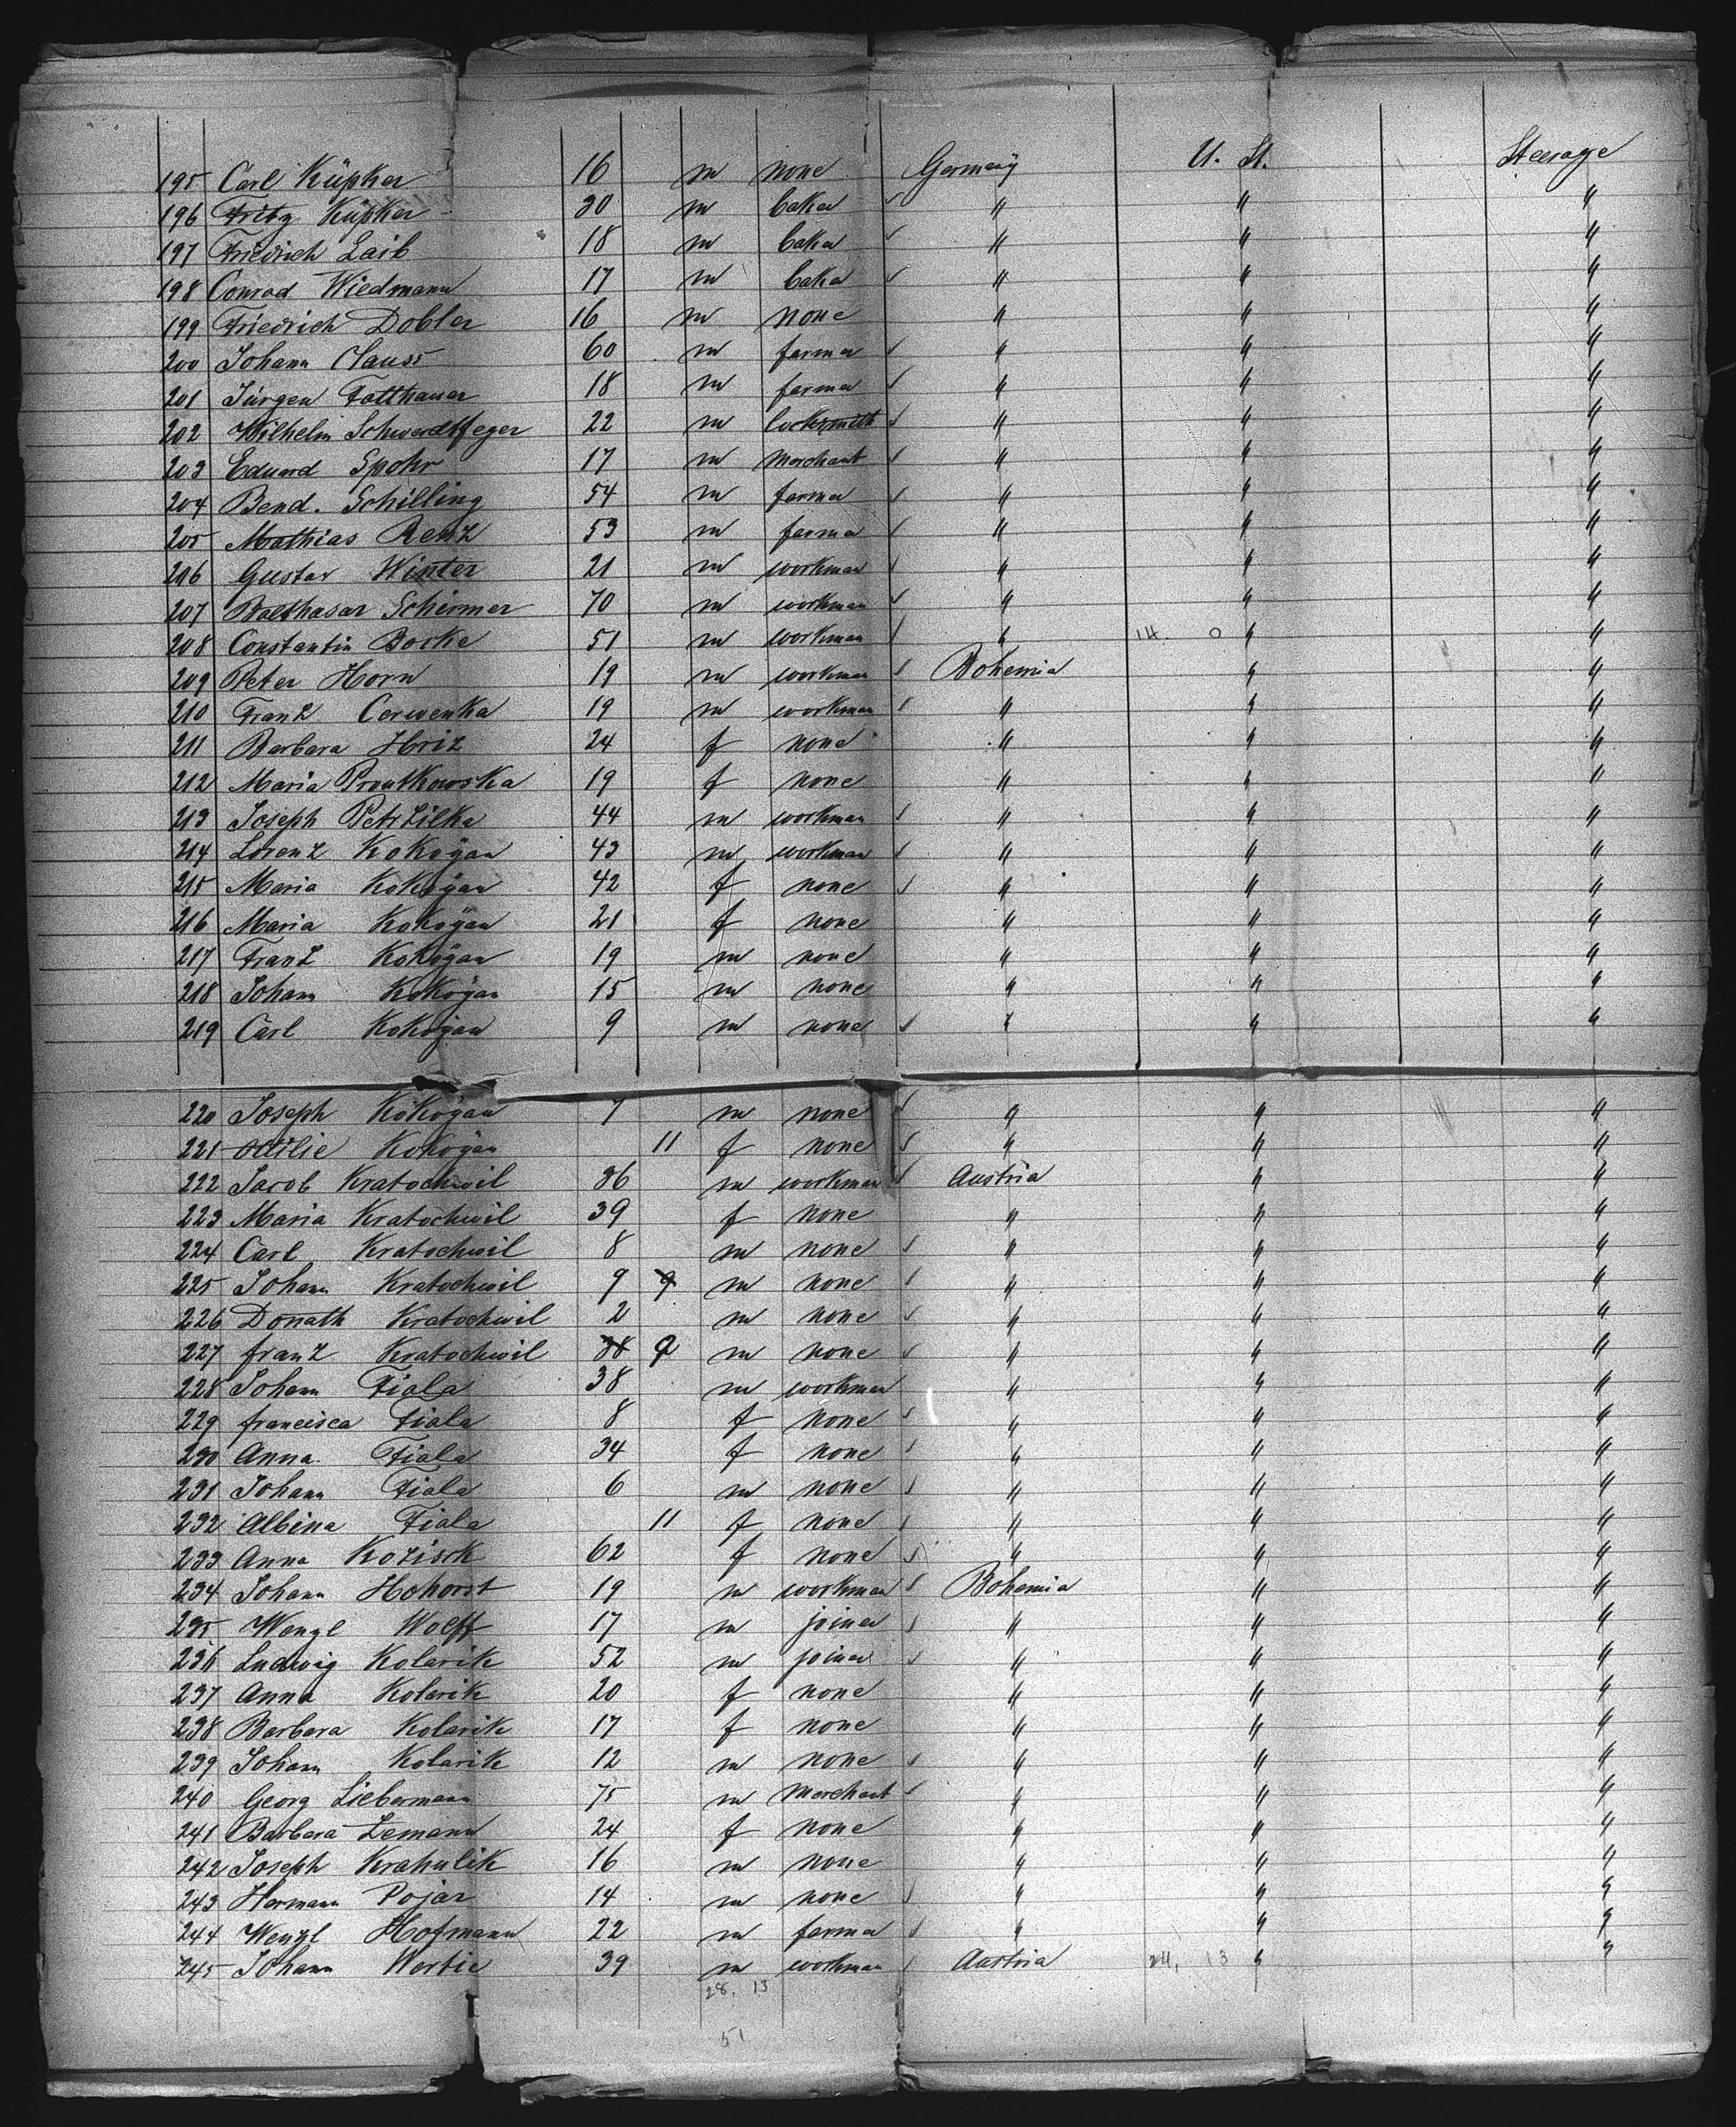 195 Carl Küpker 16 m none Germany U. St. Steerage
196 Fritz Küpker 30 m baker " " "
197 Friedrich Laib 18 m baker " " "
198 Conrad Wiedmann 17 m baker " " "
199 Friedrich Dobler 16 m none " " "
200 Johann Clauss 60 m farmer " " "
201 Jürgen Fatthauer 18 m farmer " " "
202 Wilhelm Schwerdtfeger 22 m locksmith " " "
203 Eduard Spohr 17 m merchant " " "
204 Bend. Schilling 54 m farmer " " "
205 Mathias Renz 53 m farmer " " "
206 Gustav Winter 21 m workman " " "
207 Balthasar Schirmer 70 m workman " " "
208 Constantin Boske 51 m workman " 14. 0 " "
209 Peter Horn 19 m workman Bohemia " "
210 Franz Cerwenka 19 m workman " " "
211 Barbara Hriz 24 f none " " "
212 Maria Proutkowska 19 f none " " "
213 Joseph Petrzilka 44 m workman " " "
214 Lorenz Kokoÿan 43 m workman " " "
215 Maria Kokoÿan 42 f none " " "
216 Maria Kokoÿan 21 f none " " "
217 Franz Kokoÿan 19 m none " " "
218 Johann Kokoÿan 15 m none " " "
219 Carl Kokoÿan 9 m none " " "
220 Joseph Kokoÿan 7 m none " " "
221 Ottilie Kokoÿan 11 f none " " "
222 Jacob Kratochwil 36 m workman Austria " "
223 Maria Kratochwil 39 f none " " "
224 Carl Kratochwil 8 m none " " "
225 Johann Kratochwil 9 9 m none " " "
226 Donath Kratochwil 2 m none " " "
227 franz Kratochwil 38 9 m none " " "
228 Johann Fiala 38 m workman " " "
229 francisca Fiala 8 f none " " "
230 Anna Fiala 34 f none " " "
231 Johann Fiala 6 m none " " "
232 Albina Fiala 11 f none " " "
233 Anna Kozisek 62 f none " " "
234 Johann Hohorst 19 m workman Bohemia " "
235 Wenzl Wolff 17 m joiner " " "
236 Ludwig Kolarik 52 m joiner " " "
237 Anna Kolarik 20 f none " " "
238 Barbara Kolarik 17 f none " " "
239 Johann Kolarik 12 m none " " "
240 Georg Liebermann 75 m merchant " " "
241 Barbara Zemann 24 f none " " "
242 Joseph Krahulik 16 m none " " "
243 Hermann Pojar 14 m none " " "
244 Wenzl Hofmann 22 m farmer " " "
245 Johann Wertic 39 m workman Austria 24. 13 " "
28. 13
51